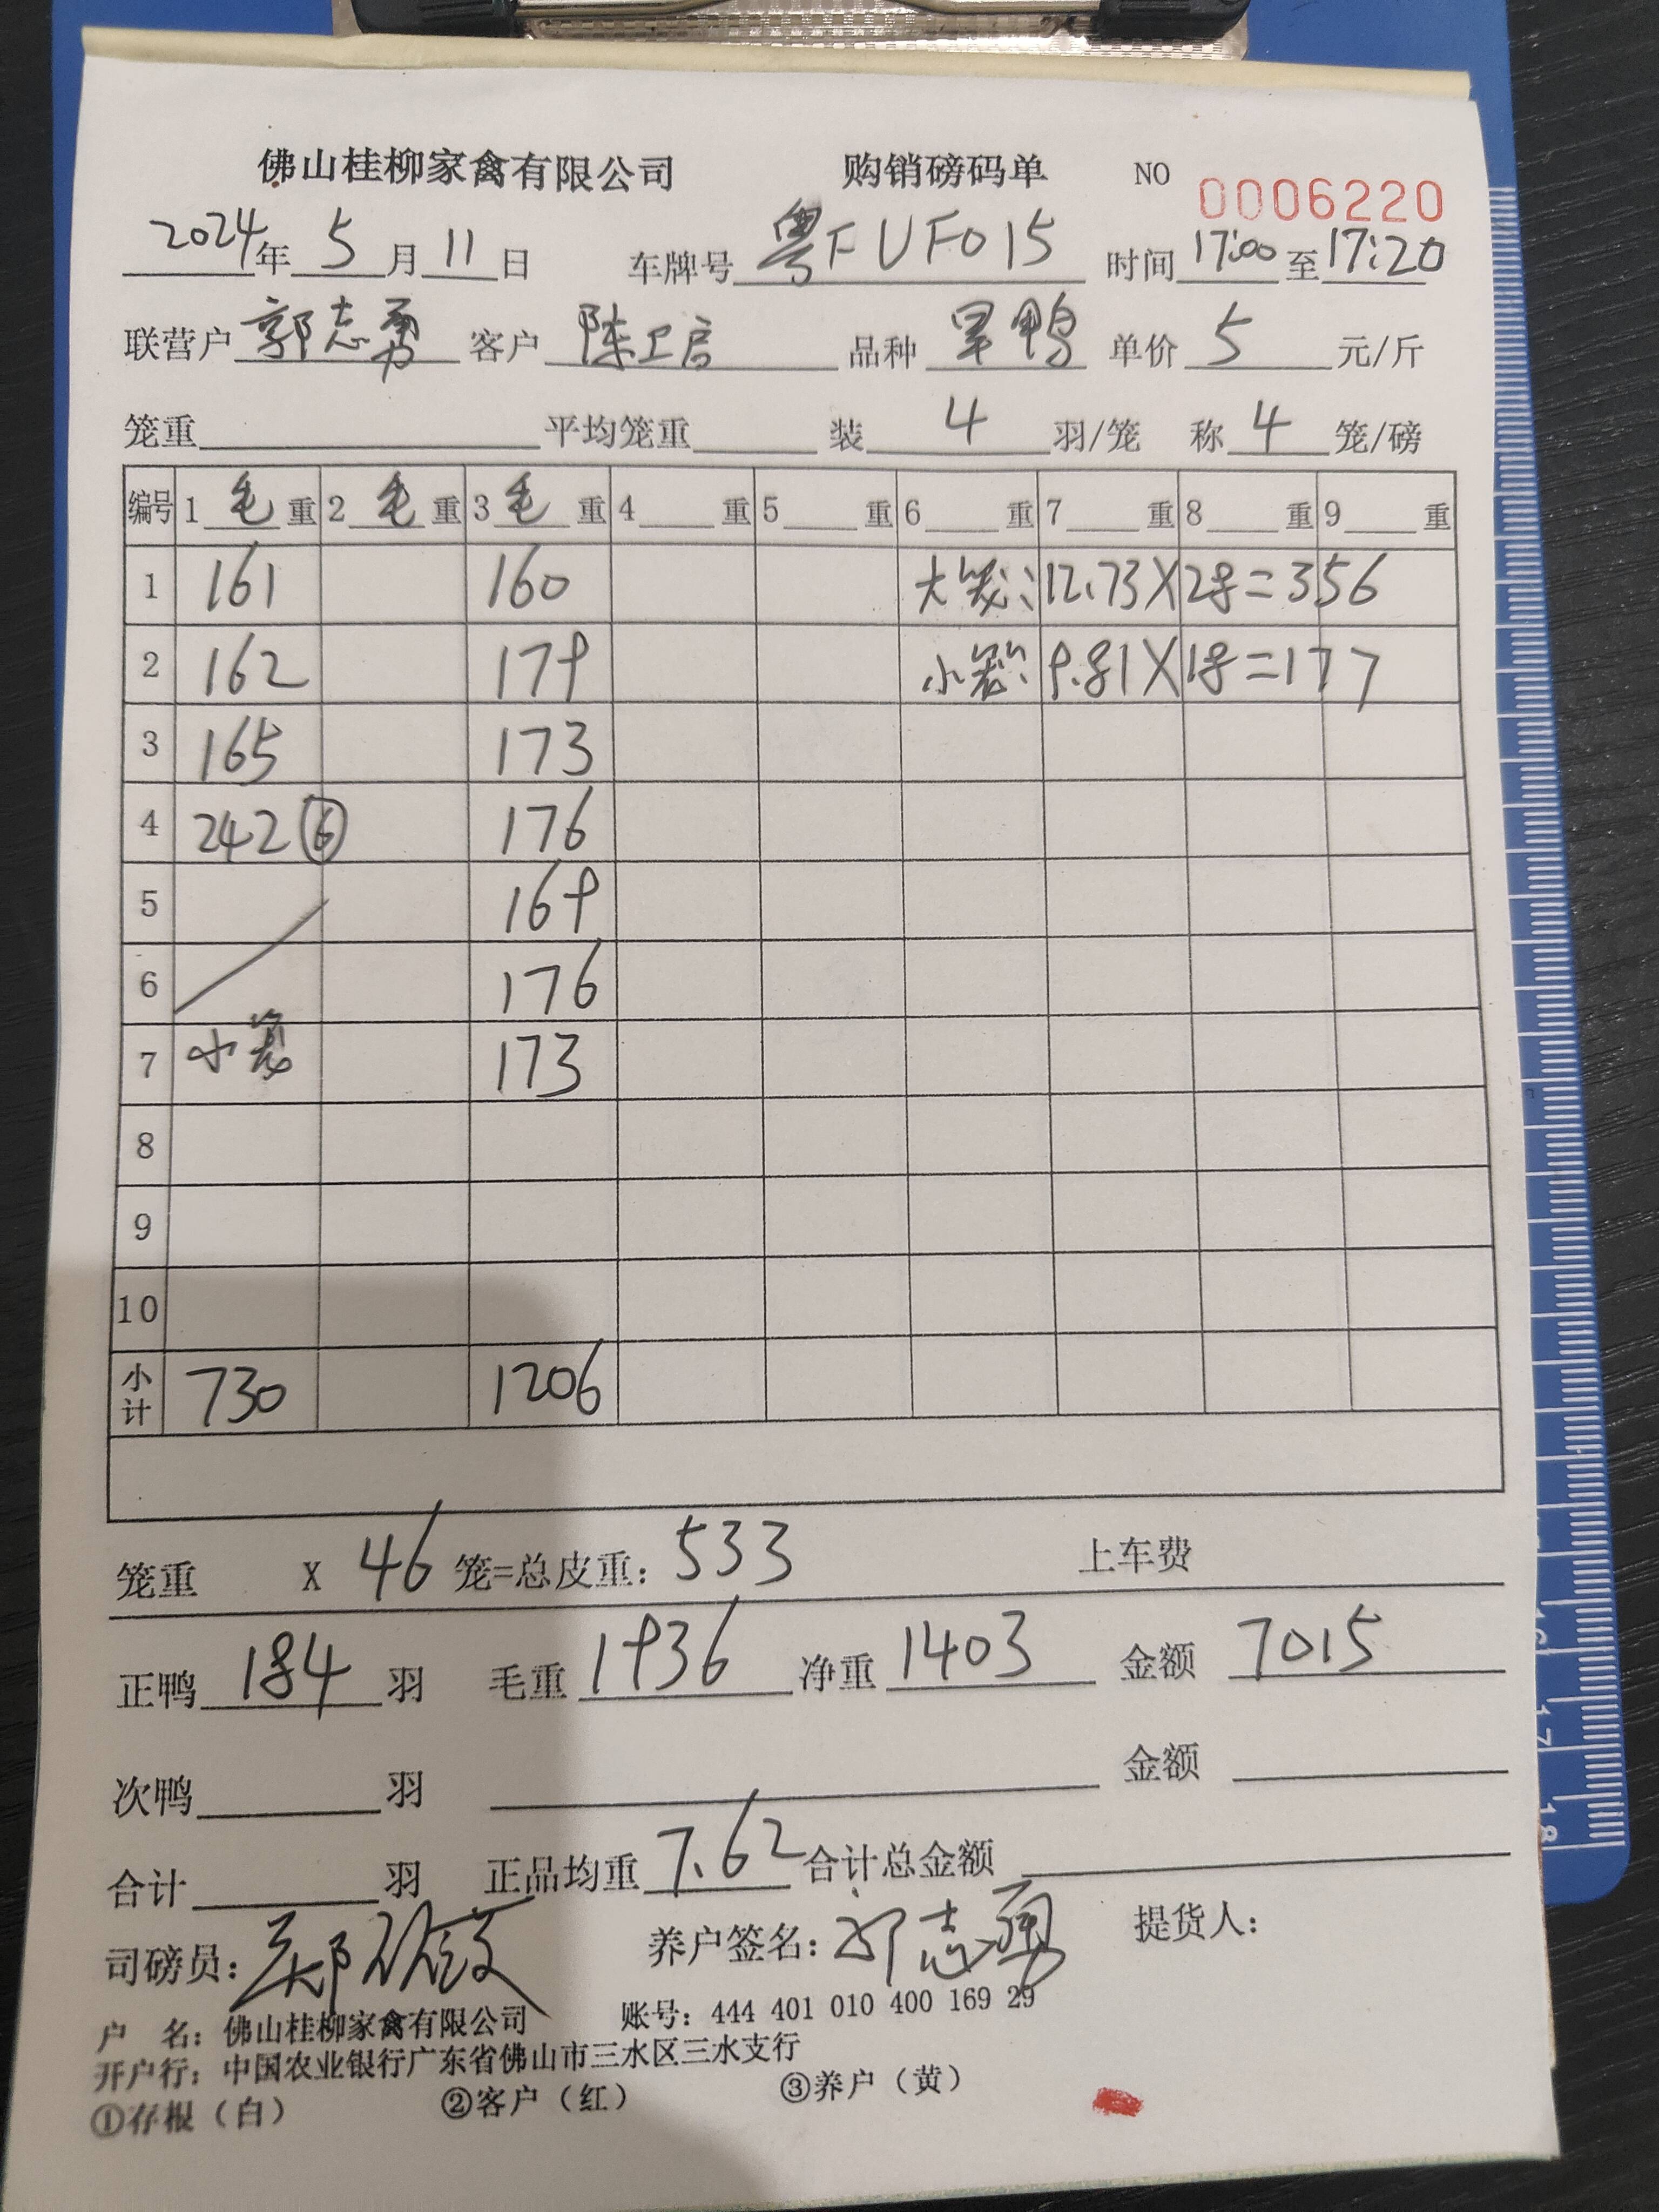 佛山桂柳家禽有限公司 购销磅码单 NO 0006220
2024年5月11日 车牌号 粤FUF015 时间 17:00 至 17:20
联营户 郭志勇 客户 陈卫启 品种 旱鸭 单价 5 元/斤
笼重 平均笼重 装 4 羽/笼 称 4 笼/磅
编号 1 毛 重 2 毛 重 3 毛 重 4 重 5 重 6 重 7 重 8 重 9 重
1 161 160 大笼:12.73X28=356
2 162 179 小笼:9.81X18=177
3 165 173
4 242 ⑥ 176
5 169
6 176
7 小笼 173
8
9
10
小计 730 1206
笼重 X 46 笼=总皮重: 533 上车费
正鸭 184 羽 毛重 1936 净重 1403 金额 7015
次鸭 羽 金额
合计 羽 正品均重 7.62 合计总金额
司磅员: 养户签名: 郭志勇 提货人:
户 名: 佛山桂柳家禽有限公司 账号: 444 401 010 400 169 29
开户行: 中国农业银行广东省佛山市三水区三水支行
①存根(白) ②客户(红) ③养户(黄)